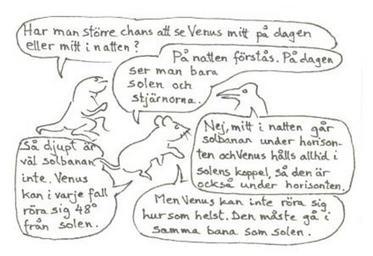 Har man större chans att se Venus mitt på dagen
eller mitt i natten?
På natten förstås. På dagen
ser man bara
solen och
stjärnorna.
Nej, mitt i natten går
solbanan under horison-
ten och Venus hålls alltid i
solens koppel, så den är
också under horisonten.
Så djupt är
väl solbanan
inte. Venus
kan i varje fall
röra sig 48°
från solen.
Men Venus kan inte röra sig
hur som helst. Den måste gå i
samma bana som solen.